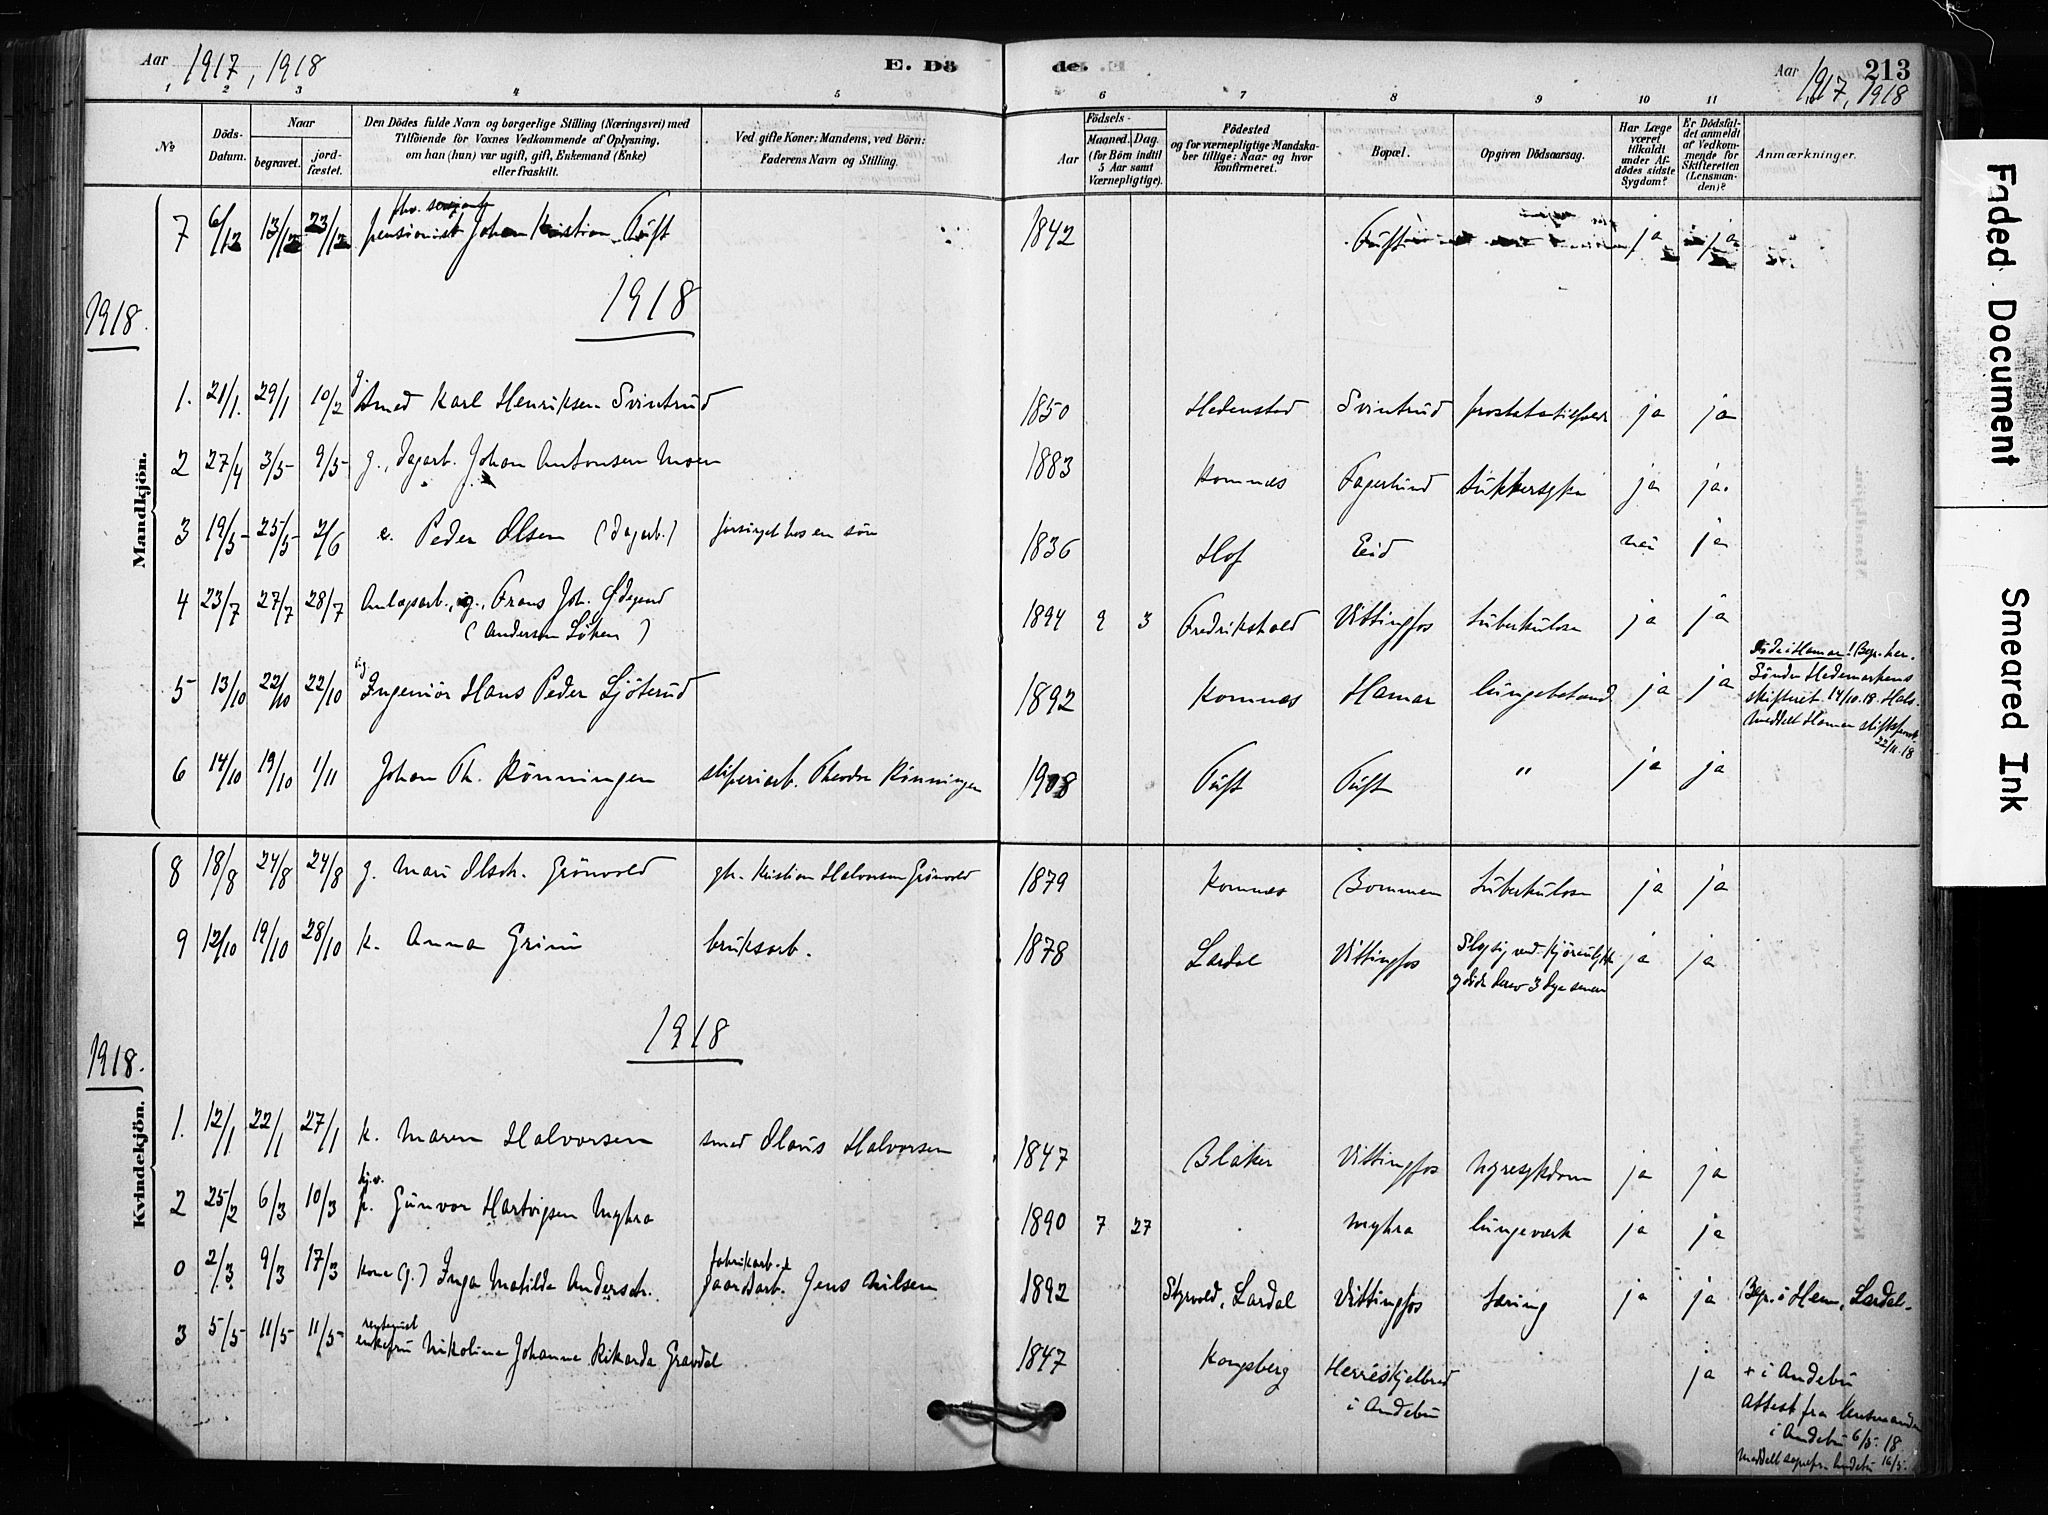 Aar 1917, 1918
E. Dö
de.
Aar 1917, 1918
213
1 2 3 4 5 6 7 8 9 10 11
No
Döds-
Datum.
Naar
begravet.
jord-
fæstet.
Den Dödes fulde Navn og borgerlige Stilling (Næringsvei) med
Tilföiende for Voxnes Vedkommende af Oplysning,
om han (hun) var ugift, gift, Enkemand (Enke)
eller fraskilt.
Ved gifte Koner: Mandens, ved Börn:
Faderens Navn og Stilling.
Födsels-
Aar
Maaned.
Dag.
(for Börn indtil
5 Aar samt
Værnepligtige).
Födested
og for værnepligtige Mandska-
ber tillige: Naar og hvor
konfirmeret.
Bopæl.
Opgiven Dödsaarsag.
Har Læge
været
tilkaldt
under Af-
dödes sidste
Sygdom?
Er Dödsfal-
det anmeldt
af Vedkom-
mende for
Skifteretten
(Lensman-
den)?
Anmærkninger.
Mandkjön.
7 6/12 13/12 23/12 pensionist Johan Kristian Tuft 1842 Tuft ja ja
1918
1918.
1. 21/1. 29/1 10/2 g. Smed Karl Henriksen Svintrud 1850 Hedenstad Svintrud ja ja
2 27/4 3/5 9/5 g., dagarb. Johan Antonsen Moen 1883 Komnes Fagerlund sukkersyke ja ja.
3 19/5 25/5 2/6 e. Peder Olsen (dagarb.) forsörget hos en sön 1836 Hof Eid nei ja
4 23/7 27/7 28/7 Anlægsarb., g., Frans Joh. Ödegaard 1894 9 3 Fredrikshald Vittingfos tuberkulose ja ja
(Andersen Löken)
5 13/10 22/10 22/10 ug. Ingeniör Hans Peder Ljöterud 1892 Komnes Hamar lungebetænd ja ja
Döde i Hamar! Begr. her.
Söndre Hedemarkens
skifteret 14/10.18.
meddelt Hamar
22/11.18
6 14/10 19/10 1/11 Johan Th. Rönningen sliperiarb. Theodor Rönningen 1908 Tuft Tuft " ja ja
Kvindekjön.
8 18/8 24/8 24/8 g. Mari Olsdt. Grönvold gh. Kristian Halvorsen Grönvold 1879 Komnes Bommen tuberkulose ja ja
9 12/10 19/10 28/10 k. Anna Grimi bruksarb. 1878 Lardal Vittingfos Slog sig ved kjöreulykke ja ja
og döde derav 3 dage senere
1918
1918.
1. 12/1 22/1 27/1 k. Maren Halvorsen smed Olaus Halvorsen 1847 Blaker Vittingfos nyresykdom ja ja
2 25/2 6/3 10/3 p. Gunvor Hartvigsen Myhra 1890 7 27 Myhra lungeverk ja ja
0 2/3 9/3 17/3 kone (g.) Inga Matilde Andersdt. fabrikarb. &
gaardarb. Jens Nilsen 1892 Styrvold, Lardal Vittingfos tæring ja ja Begr. i Hem, Lardal.
3 5/5 11/5 11/5 enkefru Nikoline Johanne Rikarda Gravdal 1847 Kongsberg Herreskjelbred
i Andebu ja + i Andebu
Attest fra lensmanden
i Andebu 6/5.18
meddelt sognepr. Andebu 16/5.
Faded Document
Smeared Ink